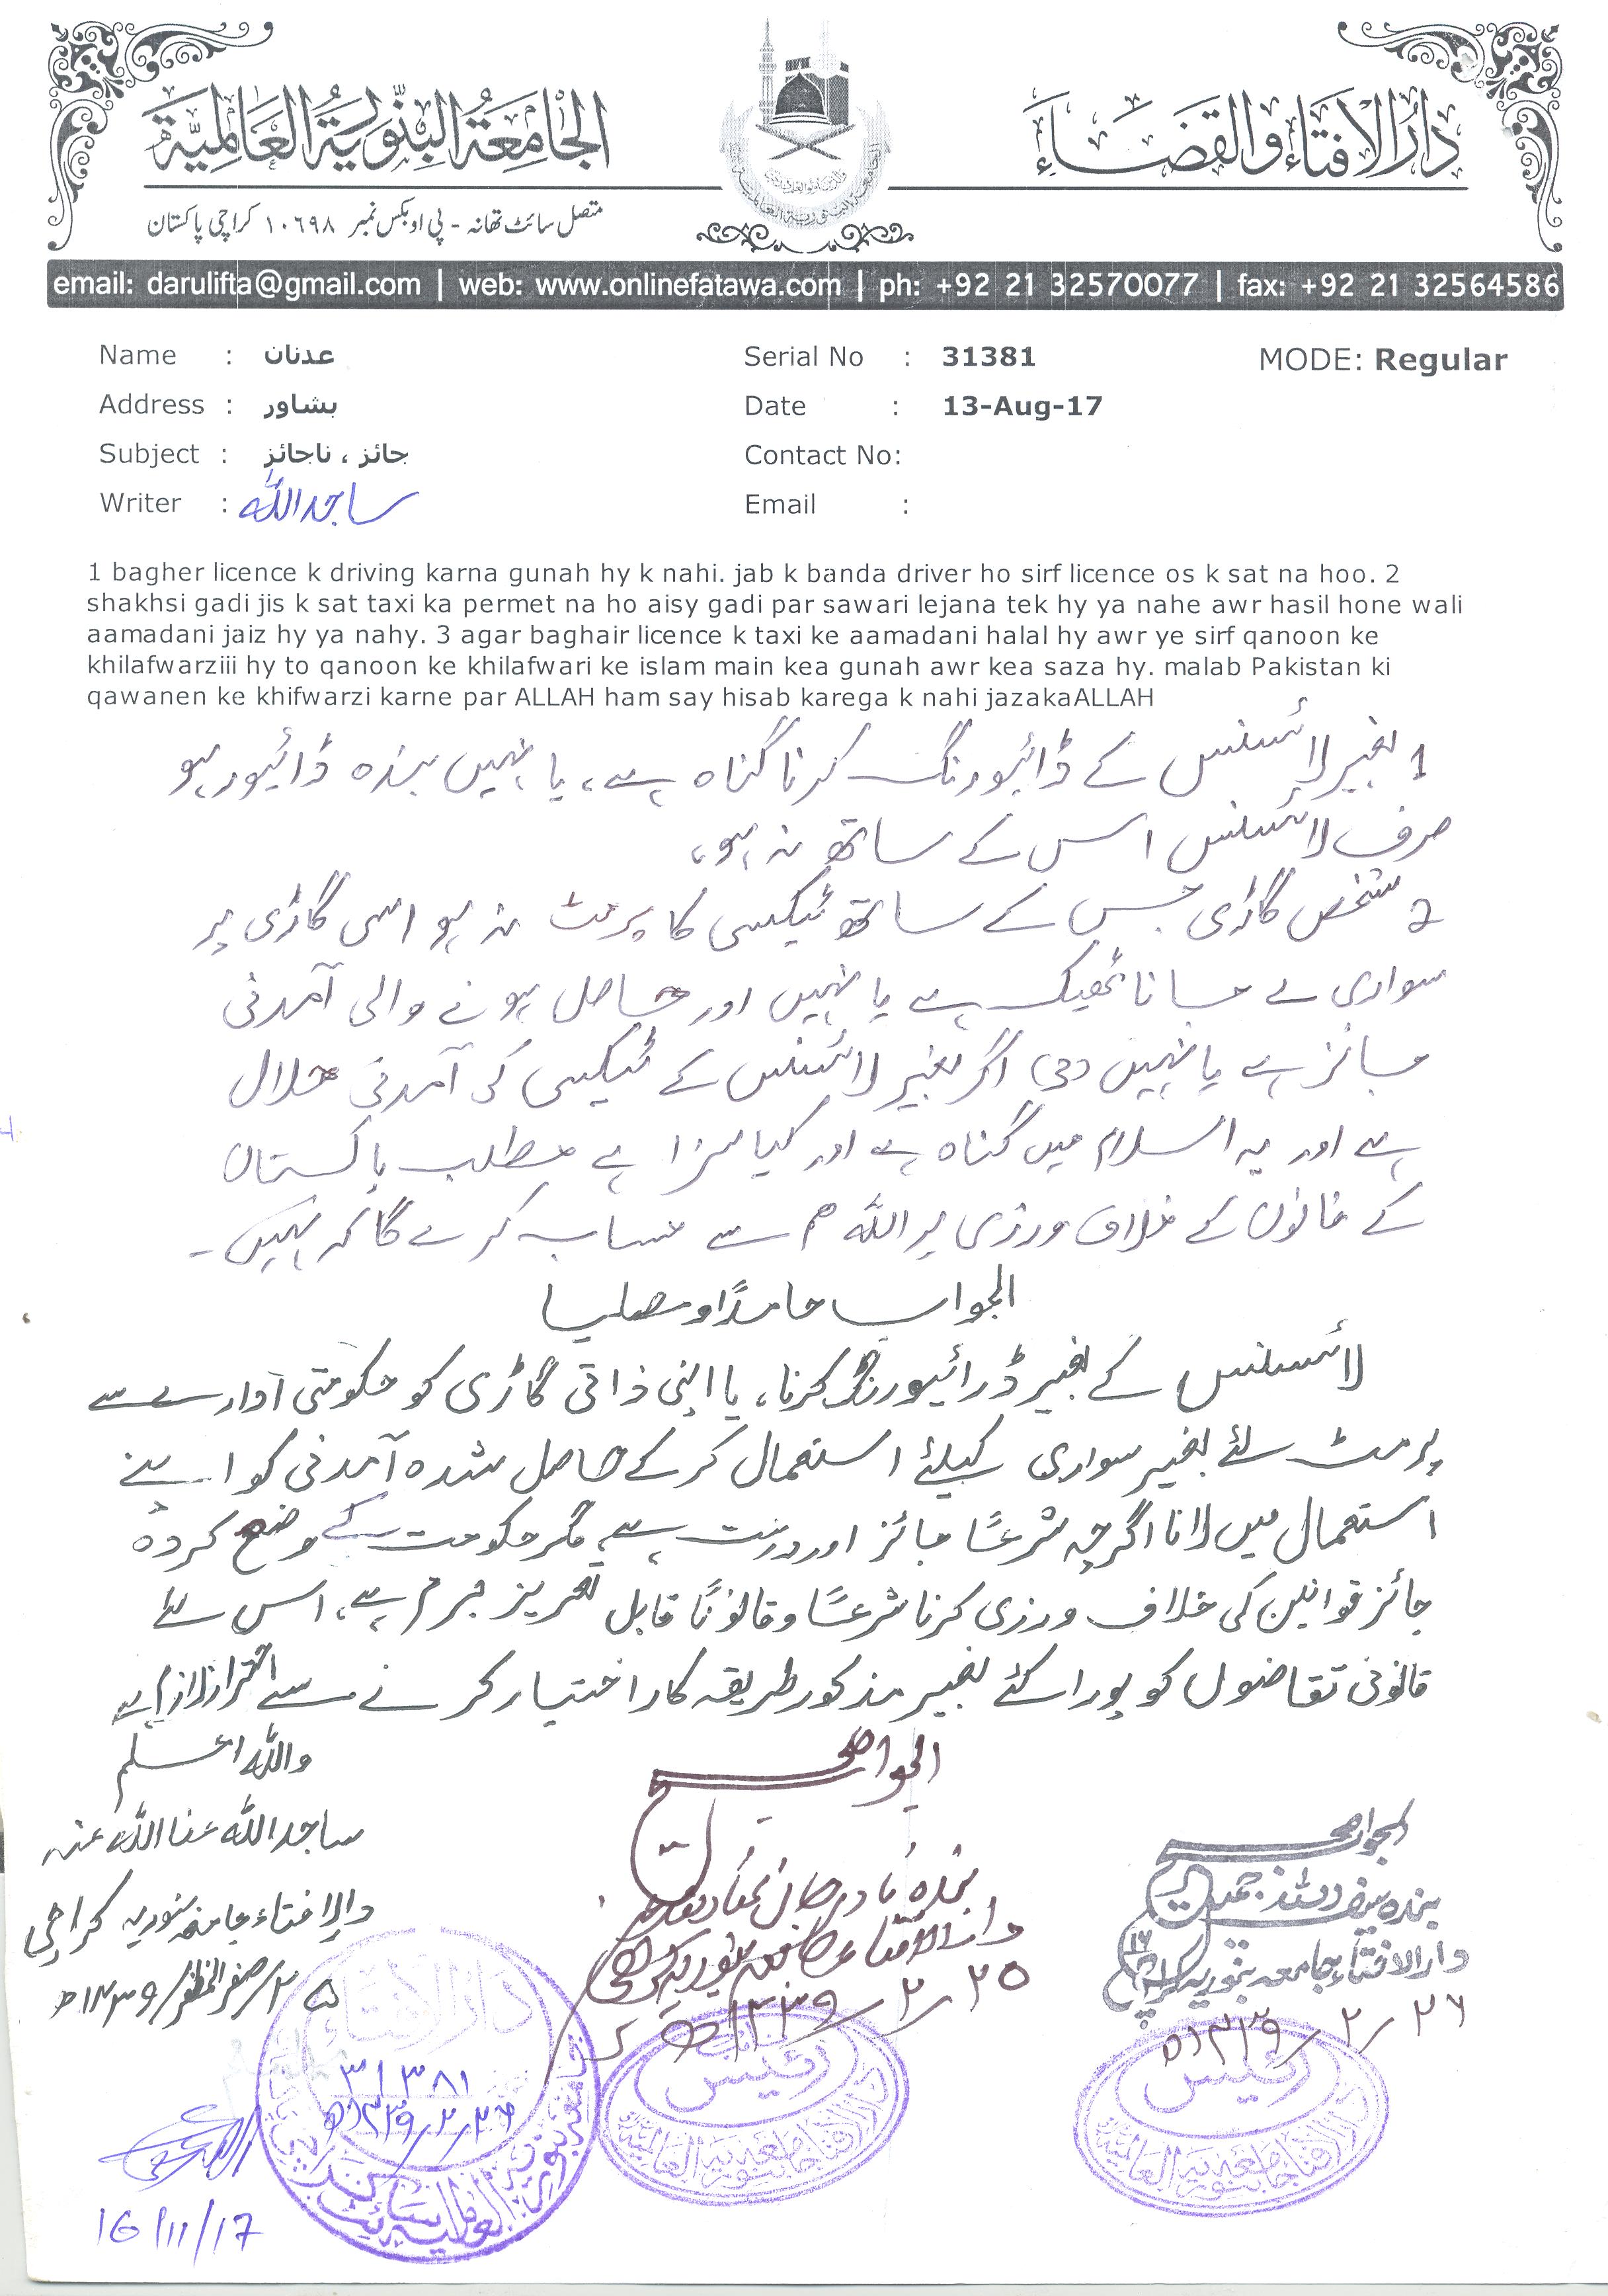 دارُالافتاء والقضاء
الجامعة البنورية العالمية
متصل سائٹ تھانہ - پی او بکس نمبر ۱۰۶۹۸ کراچی پاکستان
email: darulifta@gmail.com | web: www.onlinefatawa.com | ph: +92 21 32570077 | fax: +92 21 32564586
Name : عدنان Serial No : 31381 MODE: Regular
Address : پشاور Date : 13-Aug-17
Subject : جائز ، ناجائز Contact No:
Writer : ساجداللہ Email :
1 bagher licence k driving karna gunah hy k nahi. jab k banda driver ho sirf licence os k sat na hoo. 2
shakhsi gadi jis k sat taxi ka permet na ho aisy gadi par sawari lejana tek hy ya nahe awr hasil hone wali
aamadani jaiz hy ya nahy. 3 agar baghair licence k taxi ke aamadani halal hy awr ye sirf qanoon ke
khilafwarziii hy to qanoon ke khilafwari ke islam main kea gunah awr kea saza hy. malab Pakistan ki
qawanen ke khifwarzi karne par ALLAH ham say hisab karega k nahi jazakaALLAH
1 بغیر لائسنس کے ڈائیورنگ کرنا گناہ ہے، یا نہیں بندہ ڈائیور ہو
صرف لائسنس اس کے ساتھ نہ ہو،
2 شخص گاڑی جس کے ساتھ ٹیکسی کا پرمٹ نہ ہو اسی گاڑی پر
سواری لے جانا ٹھیک ہے یا نہیں اور حاصل ہونے والی آمدنی
جائز ہے یا نہیں (3) اگر بغیر لائسنس کے ٹیکسی کی آمدنی حلال
ہے اور یہ اسلام میں گناہ ہے اور کیا سزا ہے مطلب پاکستان
کے قانون کے خلاف ورزی پر اللہ ہم سے حساب کرے گا کہ نہیں۔
الجواب حامدًا و مصلیا
لائسنس کے بغیر ڈرائیورنگ کرنا، یا اپنی ذاتی گاڑی کو حکومتی ادارے سے
پرمٹ لئے بغیر سواری کیلئے استعمال کرکے حاصل شدہ آمدنی کو اپنے
استعمال میں لانا اگرچہ شرعًا جائز اور درست ہے، مگر حکومت کے وضع کردہ
جائز قوانین کی خلاف ورزی کرنا شرعًا و قانونًا قابل تعزیز جرم ہے، اس لئے
قانونی تقاضوں کو پورا کئے بغیر مذکور طریقہ کار اختیار کرنے سے احتراز لازم ہے
واللہ اعلم
ساجداللہ عفا اللہ عنہ
دارالافتاء جامعہ بنوریہ کراچی
۲۵/صفر المظفر/۱۴۳۹ھ
الجواب صحیح
دارالافتاء جامعہ بنوریہ کراچی
۲۵/۲/۱۴۳۹ھ
الجواب صحیح
دارالافتاء جامعہ بنوریہ کراچی
۲۶/۲/۱۴۳۹ھ
دارالافتاء
۳۱۳۸۱
رئیس
رئیس
16/11/17